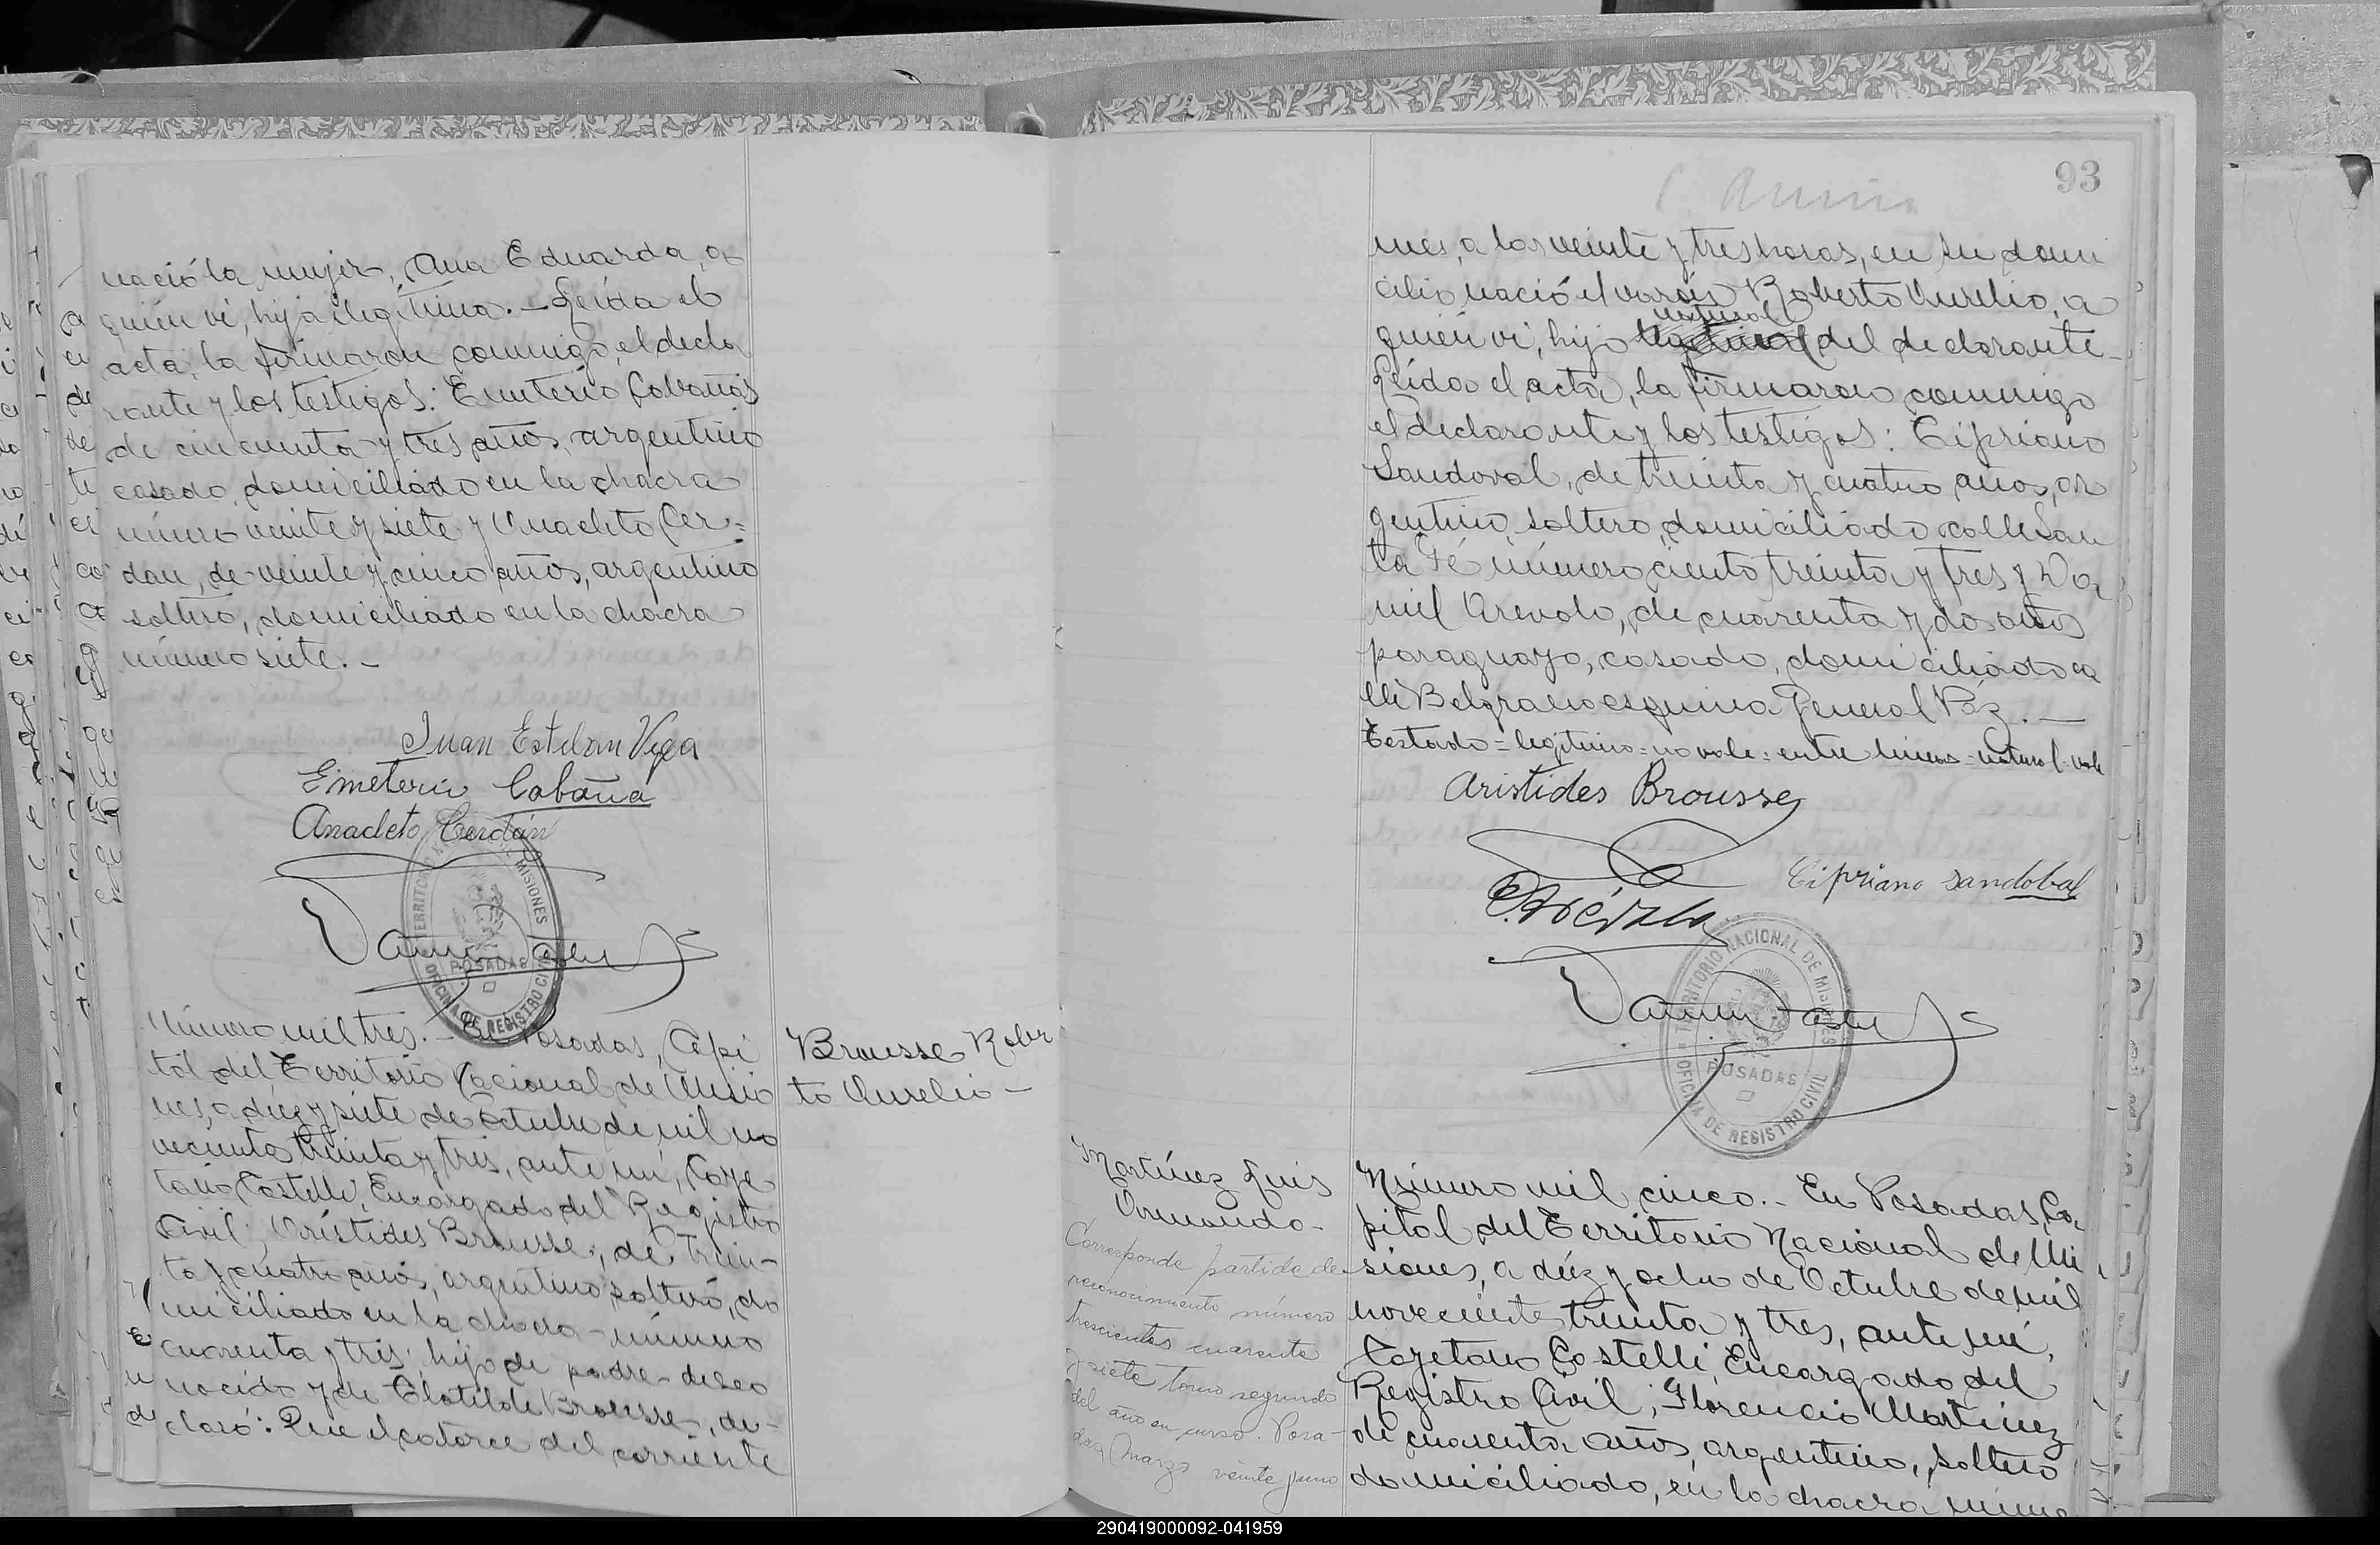 nació la mujer, Ana Eduarda, a
quién vi, hija ilegítima. - Leída el
acta, la firmaron conmigo, el decla
rante y los testigos: Emeterio Cabañas
de cincuenta y tres años, argentino
casado, domiciliado en la chacra
número veinte y siete y Anacleto Cer=
dan, de veinte y cinco años, argentino
soltero, domiciliado en la chacra
número siete. -
Juan Esteban Vega
Emeterio Cabaña
Anacleto Cerdán
TERRITORIO NACIONAL DE MISIONES
POSADAS
OFICINA DE REGISTRO CIVIL
Número mil tres. - En Posadas, Capi
tal del Territorio Nacional de Misio
nes, a diez y siete de Octubre de mil no
veciento treinta y tres, ante mí, Caye
tano Castelli, Encargado del Registro
Civil; Arístides Brousse, de trein-
ta y cuatro años, argentino, soltero, do
miciliado en la chacra - número
cuarenta y tres, hijo de padre desco
nocido y de Clotilde Brousse, de-
claró: Que el catorce del corriente
Brousse Rober
to Aurelio -
93
mes, a las veinte y tres horas, en su domi
cilio nació el varón Roberto Aurelio, a
natural
quién vi, hijo del declarante -
Leída el acta, la firmaron conmigo
el declarante y los testigos: Cipriano
Sandoval, de treinta y cuatro años, ar
gentino, soltero, domiciliado calle San
ta Fé número ciento treinta y tres y Da
niel Arevalo, de cuarenta y dos años
paraguayo, casado, domiciliado ca
lle Belgrano esquina General Páz. -
Testado = legítimo = no vale: entre líneas = natural: vale
Aristides Brousse
Cipriano Sandobal
TERRITORIO NACIONAL DE MISIONES
POSADAS
OFICINA DE REGISTRO CIVIL
Martínez Luis
Armando -
Corresponde partida de
reconocimiento número
trescientos cuarenta
y siete tomo segundo
del año en curso. Posa-
das, Marzo veinte y uno
Número mil cinco. - En Posadas, Ca
pital del Territorio Nacional de Mi
siones, a diez y ocho de Octubre de mil
noveciento treinta y tres, ante mí,
Cayetano Castelli, Encargado del
Registro Civil; Florencio Martínez
de cuarenta años, argentino, soltero
domiciliado, en la chacra núme
290419000092-041959